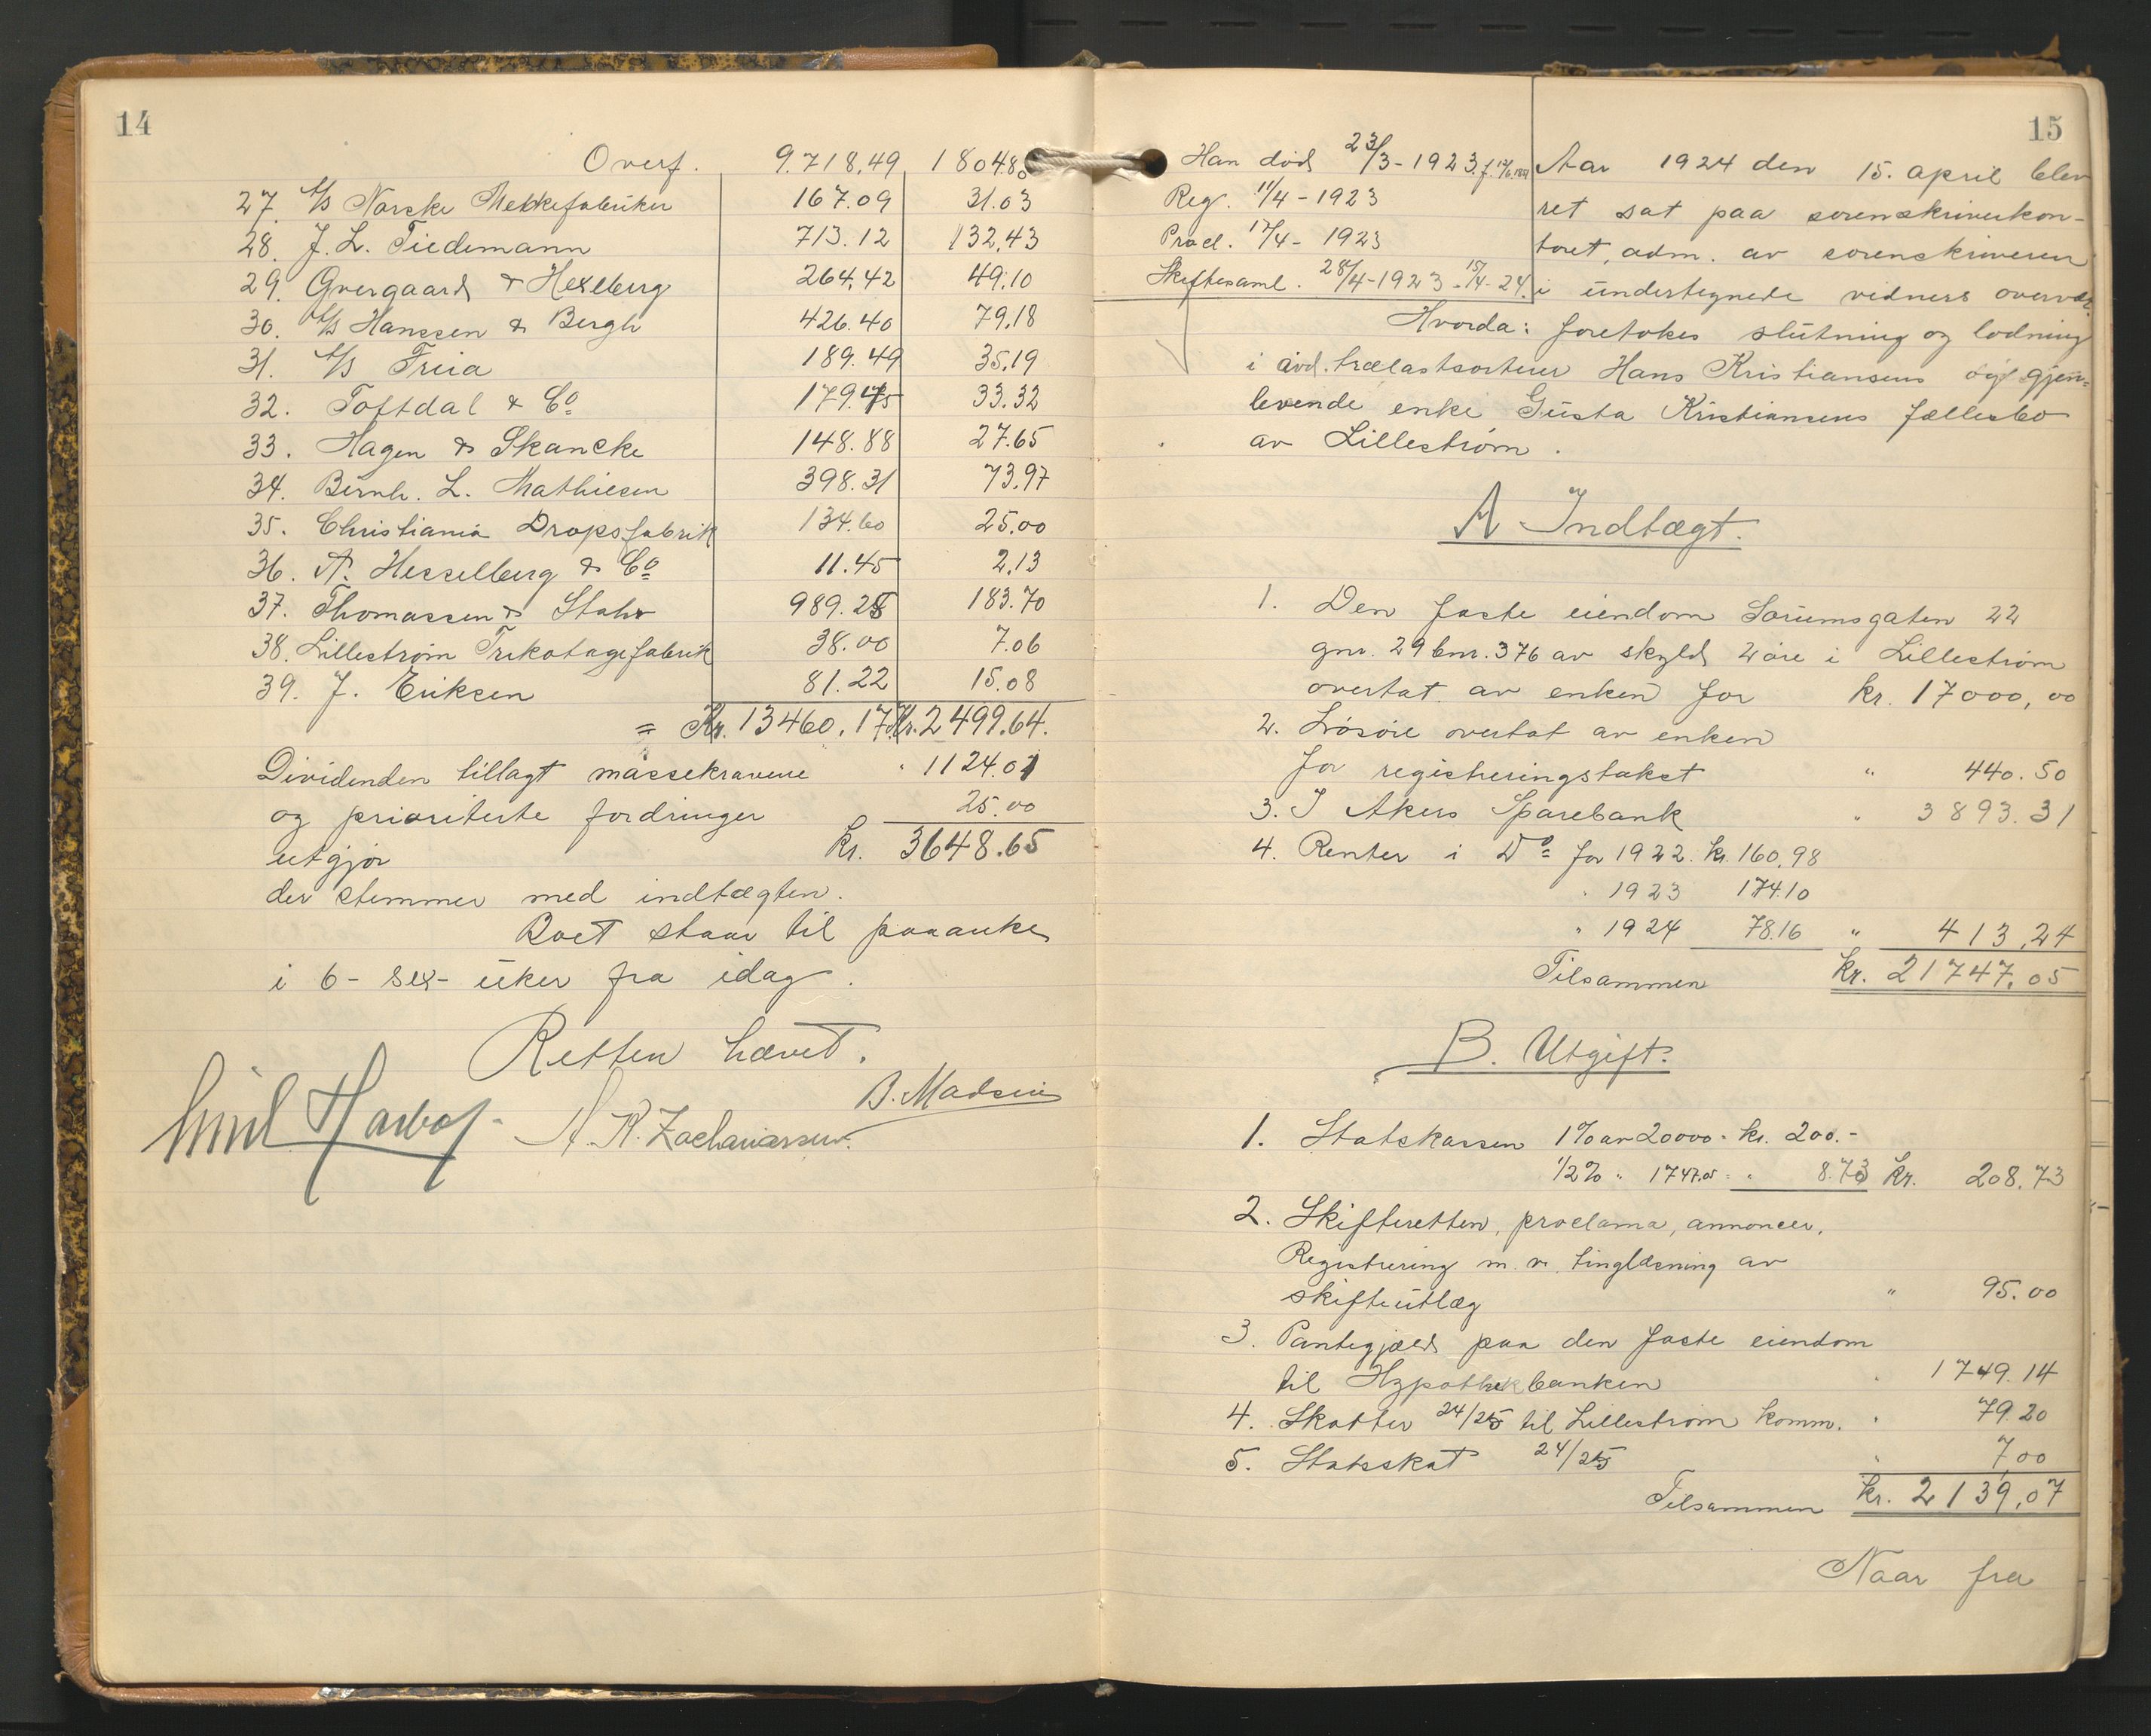 14
Overf. 9.718,49 1804.80
27. A/S Norske Melkefabriker 167.09 31.03
28. J. L. Tiedemann 713.12 132,43
29. Overgaard & Hexeberg 264,42 49.10
30. A/S Hanssen & Bergh 426.40 79,18
31. A/S Freia 189.49 35,19
32. Toftdal & Co 179.45 33.32
33. Hagen & Skancke 148.88 27.65
34. Bernh. L. Mathiesen 398.31 73,97
35. Christiania Dropsfabrik 134.60 25,00
36. A. Hesselberg & Co 11.45 2,13
37. Thomassen & Stahr 989.28 183.70
38. Lillestrøm Trikotagefabrik 38.00 7.06
39. J. Eriksen 81.22 15.08
= Kr. 13460.17 Kr. 2499,64.
Dividenden tillagt massekravene " 1124.01
og prioriterte fordringer 25.00
utgjør kr. 3648.65
der stemmer med indtægten.
Boet staar til paaanke
i 6 - sex - uker fra idag.
Retten hævet.
B. Madsen
Emil A. K. Zachariassen.
15
Han død 23/3 - 1923.
Reg. 11/4 - 1923
Procl. 17/4 - 1923
Skiftesaml. 28/4-1923 - 15/4-24.
Aar 1924 den 15. april blev
ret sat paa sorenskriverkon-
toret, adm. av sorenskriveren
i undertegnede vidners overvær.
Hvorda: foretokes slutning og lodning
i avd. trælastsorterer Hans Kristiansens og gjen-
levende enke Gusta Kristiansens fællesbo
av Lillestrøm.
A Indtægt.
1. Den faste eiendom Sørumsgaten 22
gnr. 29 bnr. 376 av skyld 2 øre i Lillestrøm
overtat av enken for kr. 17000,00
2. Løsøre overtat av enken
for registreringstakst " 440.50
3. I Akers Sparebank " 3893.31
4. Renter i Do for 1922. kr. 160,98
" 1923 174.10
" 1924 78.16 " 413,24
Tilsammen kr. 21747,05
B. Utgift.
1. Statskassen 1% av 20000 = kr. 200.-
1/2% " 1747.05 = " 8.73 Kr. 208.73
2. Skifteretten, proclama, annoncer,
Registrering m. v. tinglæsning av
skifteutlæg " 95.00
3. Pantegjæld paa den faste eiendom
til Hypothekbanken " 1749.14
4. Skatter 24/25 til Lillestrøm komm. " 79.20
5. Statsskat 24/25 " 7,00
Tilsammen kr. 2139,07
Naar fra